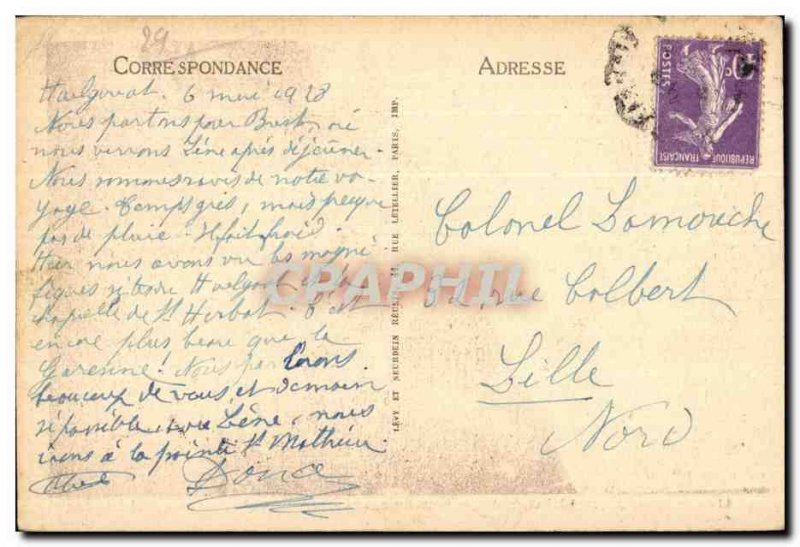 29
CORRESPONDANCE
Huelgoat. 6 mai 1928
Nous partons pour Brest, où
nous verrons Lène après déjeuner.
Nous sommes ravis de notre vo-
yage. Temps gris, mais presque
pas de pluie. Il fait froid.
Hier nous avons vu les magni-
fiques Huelgoat et la
chapelle de St Herbot. C'est
encore plus beau que la
Garenne! Nous parlerons
beaucoup de vous, et demain
si possible avec Lène, nous
irons à la pointe St Mathieu.
LÉVY ET NEURDEIN RÉUNIS, 44, RUE LETELLIER, PARIS, IMP.
ADRESSE
POSTES
RÉPUBLIQUE FRANÇAISE
Colonel Lamouche
52 rue Colbert
Lille
Nord
CPAPHIL